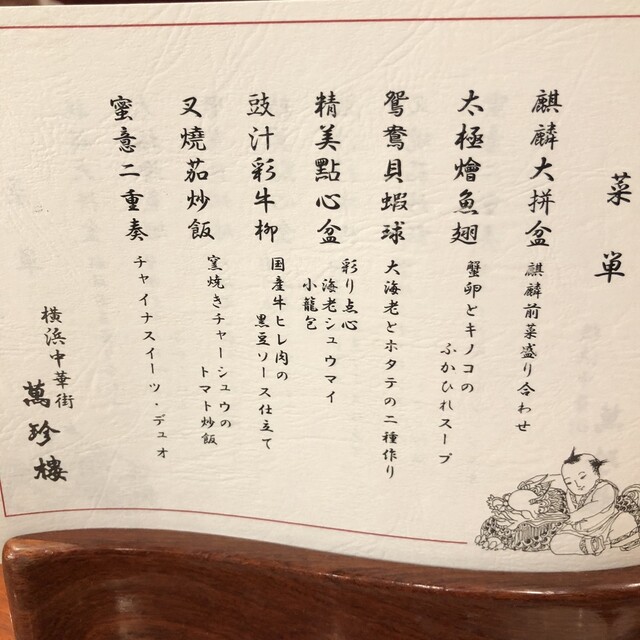 菜単
麒麟大拼盆
麒麟前菜盛り合わせ
太極燴魚翅
蟹卵とキノコの
ふかひれスープ
鴛鴦貝蝦球
大海老とホタテの二種作り
精美點心盆
彩り点心
海老シュウマイ
小龍包
豉汁彩牛柳
国産牛ヒレ肉の
黒豆ソース仕立て
叉燒茄炒飯
窯焼きチャーシュウの
トマト炒飯
蜜意二重奏
チャイナスイーツ・デュオ
横浜中華街
萬珍樓